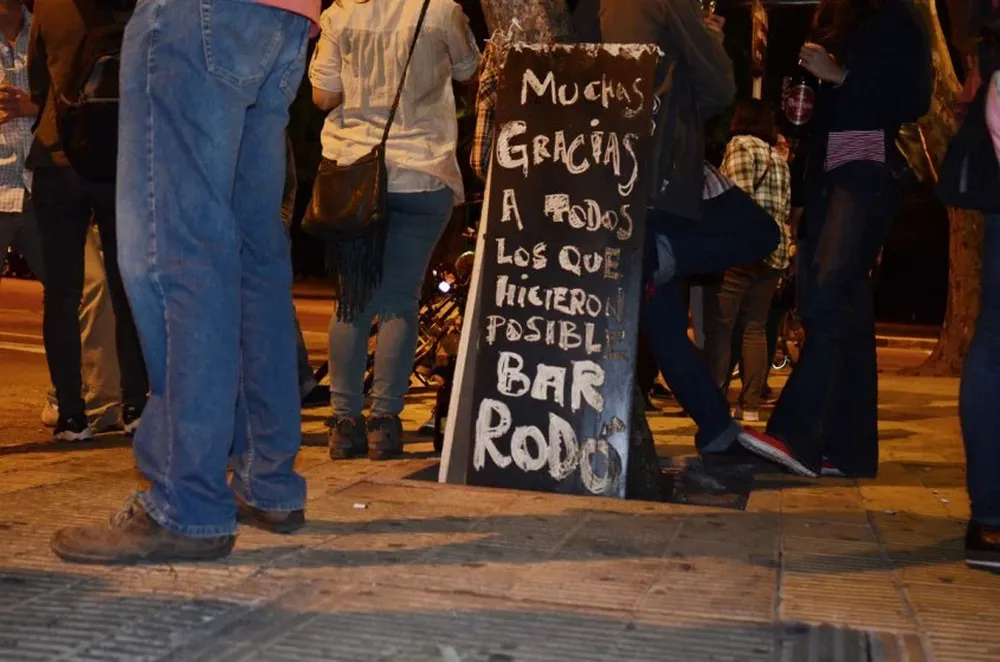 MUCHAS
GRACIAS
A TODOS
LOS QUE
HICIERON
POSIBLE
BAR
RODÓ